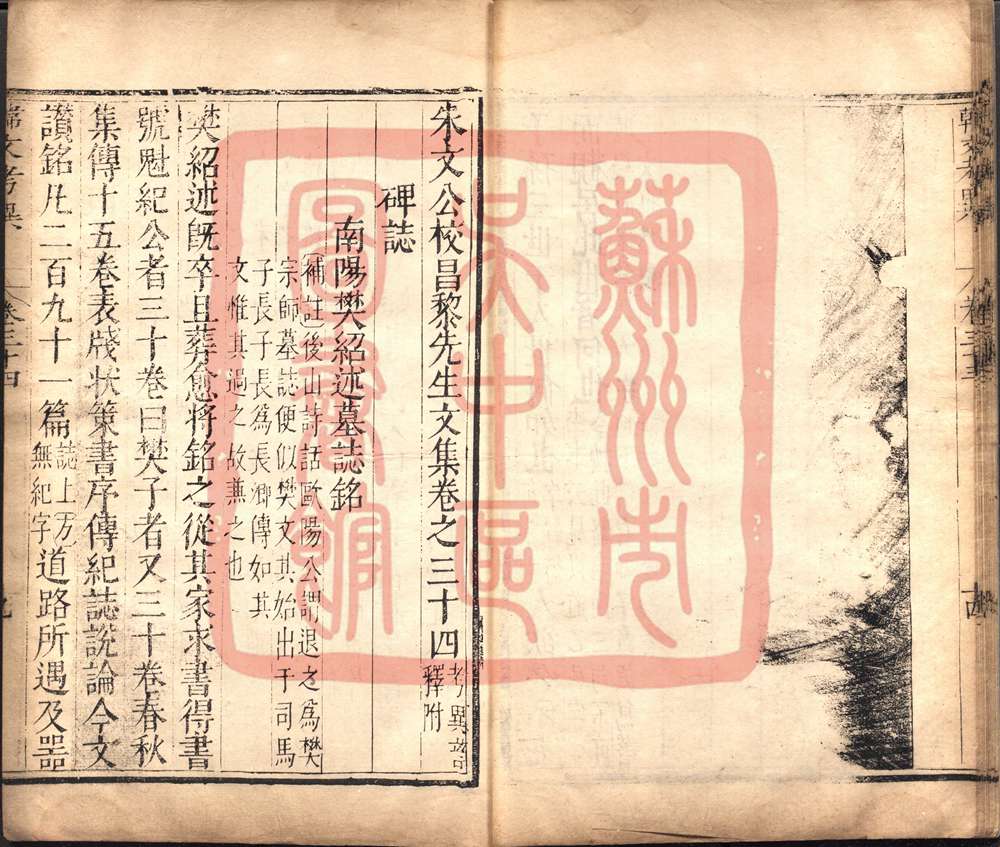 朱文公校昌黎先生文集卷之三十四
考異音釋附
碑誌
南陽樊紹述墓誌銘
補註後山詩話歐陽公謂退之爲樊
宗師墓誌便似樊文其始出于司馬
子長子長爲長卿傳如其
文惟其過之故兼之也
樊紹述旣卒且葬愈將銘之從其家求書得書
號魁紀公者三十卷曰樊子者又三十卷春秋
集傳十五卷表牋狀策書序傳紀誌說論今文
讚銘凡二百九十一篇誌上方無紀字道路所遇及器
蘇州市
吳中區
圖書館